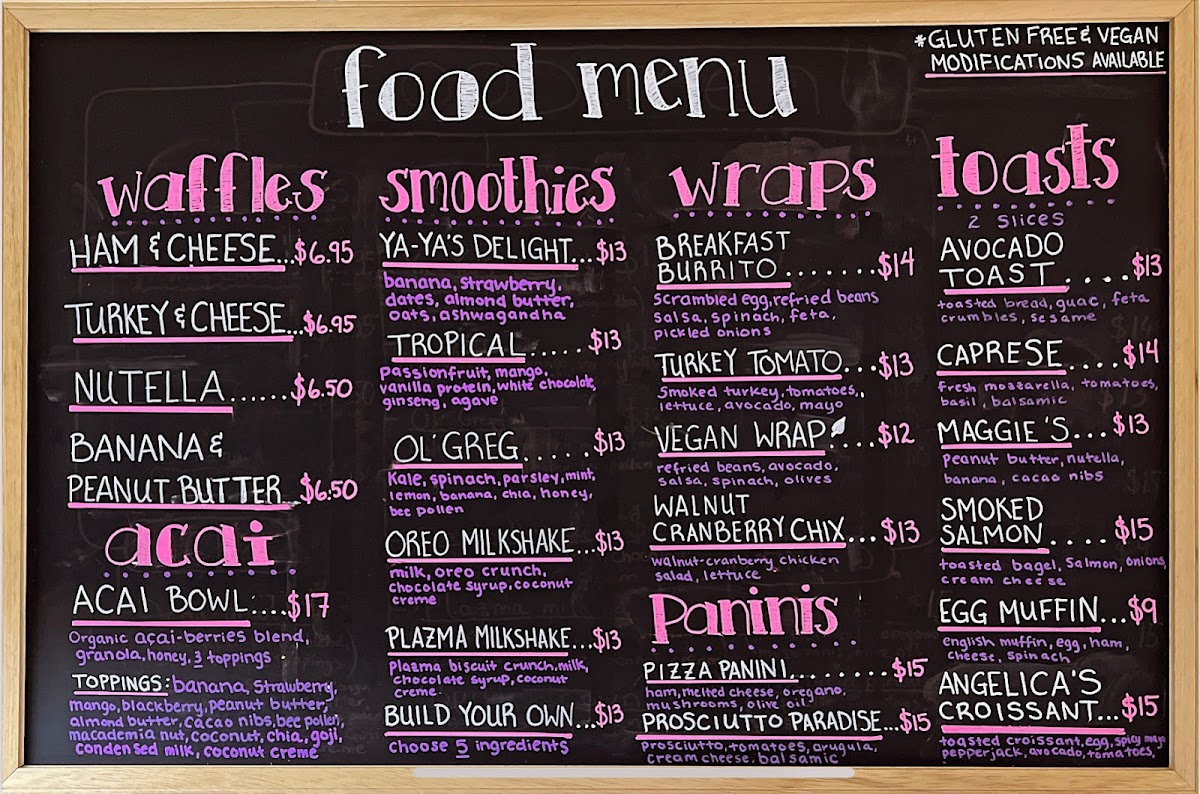 *GLUTEN FREE & VEGAN
MODIFICATIONS AVAILABLE
food menu
waffles
HAM & CHEESE...$6.95
TURKEY & CHEESE...$6.95
NUTELLA......$6.50
BANANA &
PEANUT BUTTER...$6.50
acai
ACAI BOWL....$17
Organic açai-berries blend,
granola, honey, 3 toppings
TOPPINGS: banana, strawberry,
mango, blackberry, peanut butter,
almond butter, cacao nibs, bee pollen,
macademia nut, coconut, chia, goji,
condensed milk, coconut creme
smoothies
YA-YA'S DELIGHT...$13
banana, strawberry,
dates, almond butter,
oats, ashwagandha
TROPICAL......$13
Passionfruit, mango,
vanilla protein, white chocolate,
ginseng, agave
OL' GREG.....$13
Kale, spinach, parsley, mint,
lemon, banana, chia, honey,
bee pollen
OREO MILKSHAKE...$13
milk, oreo crunch,
chocolate syrup, coconut
creme
PLAZMA MILKSHAKE...$13
Plazma biscuit crunch, milk,
chocolate syrup, coconut
creme
BUILD YOUR OWN...$13
choose 5 ingredients
wraps
BREAKFAST
BURRITO.......$14
Scrambled egg, refried beans
salsa, spinach, feta,
pickled onions
TURKEY TOMATO...$13
Smoked turkey, tomatoes,
lettuce, avocado, mayo
VEGAN WRAP...$12
refried beans, avocado,
salsa, spinach, olives
WALNUT
CRANBERRY CHIX...$13
walnut-cranberry chicken
salad, lettuce
Paninis
PIZZA PANINI.......$15
ham, melted cheese, oregano,
mushrooms, olive oil
PROSCIUTTO PARADISE...$15
prosciutto, tomatoes, arugula,
cream cheese, balsamic
toasts
2 slices
AVOCADO
TOAST.....$13
toasted bread, guac, feta
crumbles, sesame
CAPRESE....$14
fresh mozzarella, tomatoes,
basil, balsamic
MAGGIE'S...$13
peanut butter, nutella,
banana, cacao nibs
SMOKED
SALMON....$15
toasted bagel, Salmon, onions,
cream cheese
EGG MUFFIN...$9
english muffin, egg, ham,
cheese, spinach
ANGELICA'S
CROISSANT...$15
toasted croissant, egg, spicy mayo
pepperjack, avocado, tomatoes,